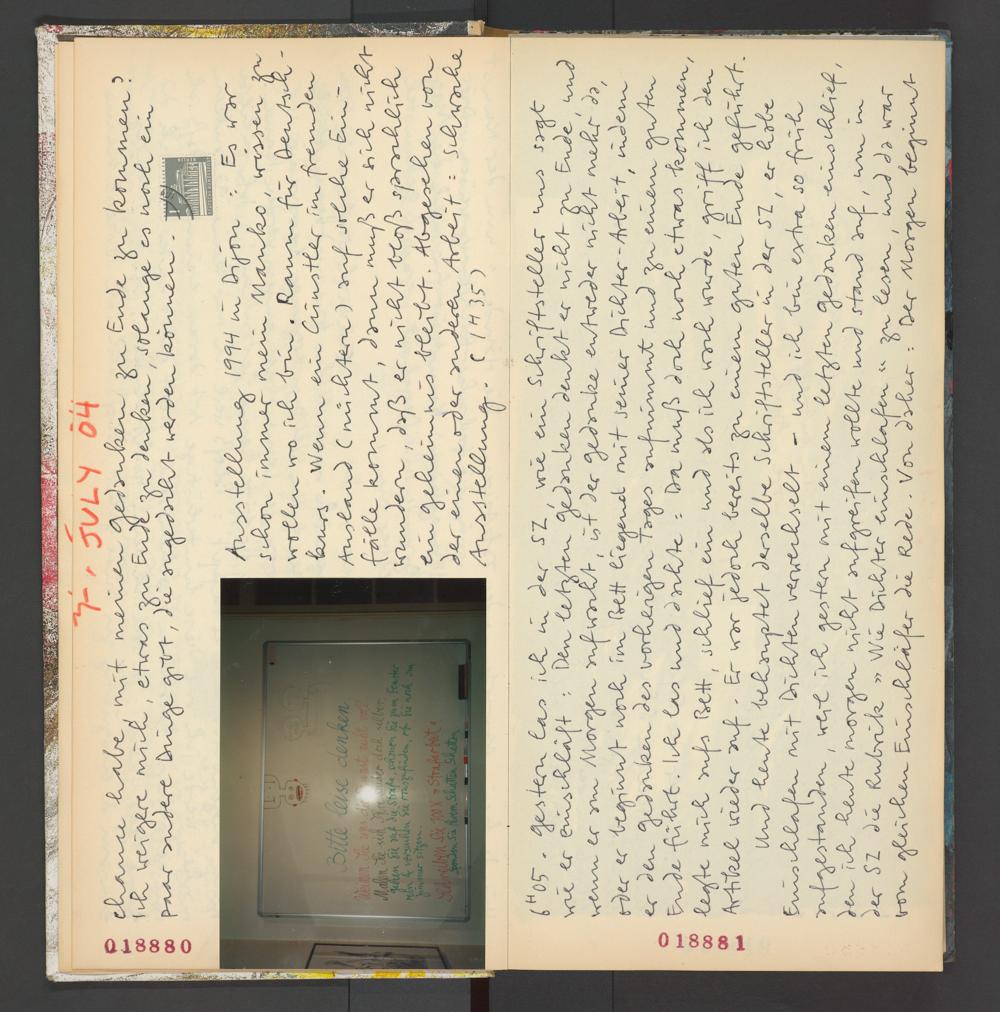 7. JULY 04
chance habe mit meinen gedanken zu Ende zu kommen?
Ich weigere mich, etwas zu Ende zu denken, solange es noch ein
paar andere Dinge gibt, die angedacht werden können.
BERLIN
Ausstellung 1994 in Dijon: Es war
schon immer mein Manko, wissen zu
wollen wo ich bin. Raum für Deutsch-
kurs. Wenn ein Künstler im fremden
Ausland (nüchtern) auf solche Ein-
fälle kommt, dann muß er sich nicht
wundern, daß er nicht bloß sprachlich
ein geheimnis bleibt. Abgesehen von
der einen oder anderen Arbeit: schwache
Ausstellung. (1435)
Bitte leise denken
018880
6H05. gestern las ich in der SZ, wie ein Schriftsteller uns sagt
wie er einschläft: Den letzten gedanken denkt er nicht zu Ende, und
wenn er am Morgen aufwacht, ist der gedanke entweder nicht mehr da,
oder er beginnt noch im Bett liegend mit seiner Dichter-Arbeit, indem
er den gedanken des vorherigen Tages aufnimmt und zu einem guten
Ende führt. Ich las und dachte: Da muß doch noch etwas kommen,
legte mich aufs Bett, schlief ein und als ich wach wurde, griff ich den
Artikel wieder auf. Er war jedoch bereits zu einem guten Ende geführt.
Und heute behauptet derselbe Schriftsteller in der SZ, er habe
Einschlafen mit Dichten verwechselt - und ich bin extra so früh
aufgestanden, weil ich gestern mit einem letzten gedanken einschlief,
den ich heute morgen nicht aufgreifen wollte und stand auf, um in
der SZ die Rubrik »Wie Dichter einschlafen« zu lesen, und da war
vom gleichen Einschläfer die Rede. Von daher: Der Morgen beginnt
018881